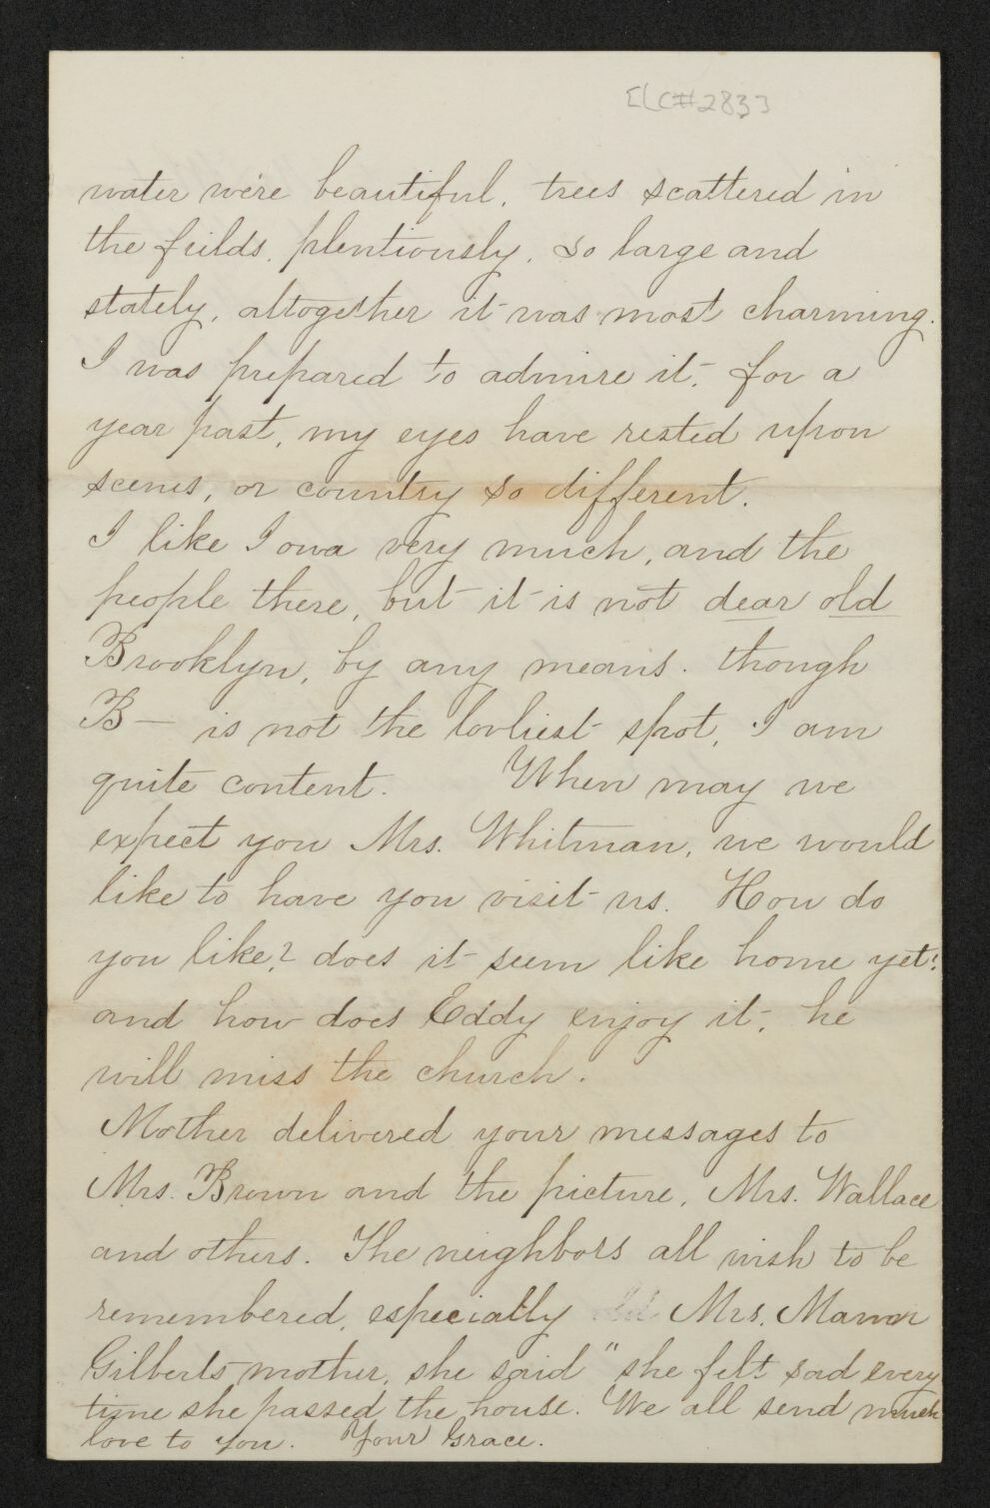 [LC#283]
water were beautiful, trees scattered in
the fields, plentiously, so large and
stately, altogether it was most charming.
I was prepared to admire it, for a
year past, my eyes have rested upon
scenes, or country so different.
I like Iowa very much, and the
people there, but it is not dear old
Brooklyn, by any means. though
B— is not the lovliest spot, I am
quite content. When may we
expect you Mrs. Whitman, we would
like to have you visit us. How do
you like? does it seem like home yet?
and how does Eddy enjoy it, he
will miss the church.
Mother delivered your messages to
Mrs. Brown and the picture, Mrs. Wallace
and others. The neighbors all wish to be
remembered, especially Mrs.
Gilberts mother, she said "she felt sad every
time she passed the house. We all send much
love to you. Your Grace.